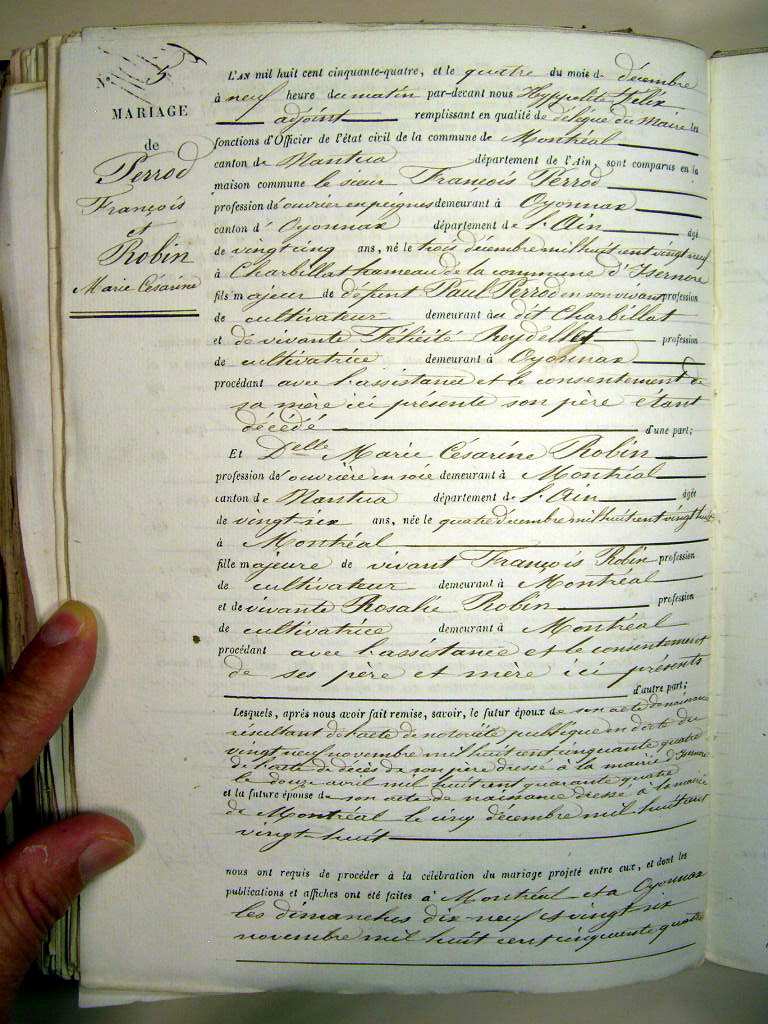 N° 5
MARIAGE
de
Perrod
François
et
Robin
Marie Césarine
L'AN mil huit cent cinquante-quatre, et le quatre du mois d décembre
à neuf heure du matin par-devant nous Hyppolite Félix
adjoint remplissant en qualité de délégué du Maire les
fonctions d'Officier de l'état civil de la commune de Montréal
canton de Nantua département de l'Ain, sont comparus en la
maison commune le sieur François Perrod
profession d'ouvrier en peignes demeurant à Oyonnax
canton d'Oyonnax département de l'Ain âgé
de vingt cinq ans, né le trois décembre mil huit cent vingt neuf
à Charbillat hameau de la commune d'Isernore
fils majeur de défunt Paul Perrod en son vivant profession
de cultivateur demeurant à dit Charbillat
et de vivante Félicité Reydellet profession
de cultivatrice demeurant à Oyonnax
procédant avec l'assistance et le consentement de
sa mère ici présente son père étant
décédé d'une part;
Et Delle Marie Césarine Robin
profession d'ouvrière en soie demeurant à Montréal
canton de Nantua département de l'Ain âgée
de vingt-six ans, née le quatre décembre mil huit cent vingt huit
à Montréal
fille majeure de vivant François Robin profession
de cultivateur demeurant à Montréal
et de vivante Rosalie Robin profession
de cultivatrice demeurant à Montréal
procédant avec l'assistance et le consentement
de ses père et mère ici présents
d'autre part;
Lesquels, après nous avoir fait remise, savoir, le futur époux de son acte de naissance
résultant de l'acte de notoriété publique en date du
vingt neuf novembre mil huit cent cinquante quatre
de l'acte de décès de son père dressé à la mairie d'Isernore
le douze avril mil huit cent quarante quatre
et la future épouse de son acte de naissance dressé à la mairie
de Montréal le cinq décembre mil huit cent
vingt-huit
nous ont requis de procéder à la célébration du mariage projeté entre eux, et dont les
publications et affiches ont été faites à Montréal et à Oyonnax
les dimanches dix-neuf et vingt six
novembre mil huit cent cinquante quatre